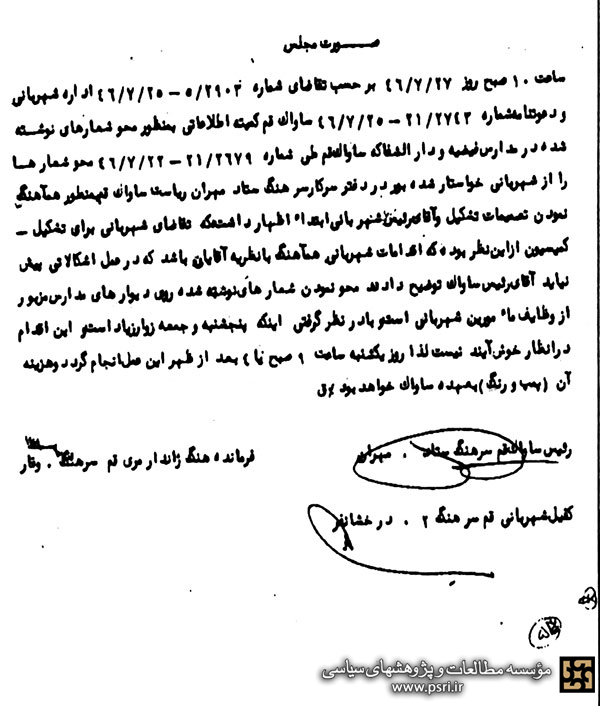 صورت مجلس
ساعت ۱۰ صبح روز ۴۶/۷/۲۷ بر حسب تقاضای شماره ۵/۲۹۰۳ – ۴۶/۷/۲۵ اداره شهربانی
و دعوتنامه شماره ۲۱/۲۷۴۳ – ۴۶/۷/۲۵ ساواک قم کمیته اطلاعاتی بمنظور محو شعارهای نوشته
شده در مدارس فیضیه و دارالشفا که ساواک قم طی شماره ۲۱/۲۶۷۹ – ۴۶/۷/۲۲ محو شعارها
را از شهربانی خواستار شده بود در دفتر سرکار سرهنگ ستاد مهران ریاست ساواک قم بمنظور هم آهنگ
نمودن تصمیمات تشکیل و آقای رئیس شهربانی ابتداء اظهار داشتند که تقاضای شهربانی برای تشکیل –
کمیسیون از این نظر بوده که اقدامات شهربانی هم آهنگ با نظریه آقایان باشد که در عمل اشکالاتی پیش
نیاید آقای رئیس ساواک توضیح دادند محو نمودن شعارهای نوشته شده روی دیوارهای مدارس مزبور
از وظایف مامورین شهربانی است و با در نظر گرفتن اینکه پنجشنبه و جمعه زوار زیاد است و این اقدام
در انظار خوش آیند نیست لذا روز یکشنبه ساعت ۹ صبح یا ۴ بعد از ظهر این عمل انجام گردد و هزینه
آن (پمپ و رنگ) بعهده ساواک خواهد بود
رئیس ساواک قم سرهنگ ستاد . مهران
فرمانده هنگ ژاندارمری قم سرهنگ . وقار
کفیل شهربانی قم سرهنگ ۲ . درخشانفر
مؤسسه مطالعات و پژوهشهای سیاسی
www.psri.ir